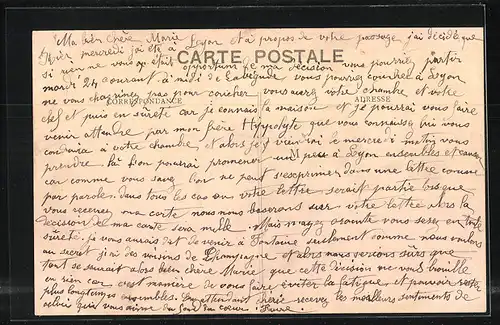 Ma bien chère Marie
Hier mercredi j'ai été à Lyon et à propos de votre passage j'ai décidé que
si rien ne vous était opportun de ma décision vous pourriez partir
CARTE POSTALE
mardi 24 courant à midi de vous pourriez coucher à Lyon
ne vous chagrinez pas pour coucher vous aurez votre chambre et votre
CORRESPONDANCE
ADRESSE
clef et puis en sûreté car je connais la maison et je pourrai vous faire
venir attendre par mon frère Hippolyte que vous connaissez qui vous
conduira à votre chambre et alors je viendrai le mercredi matin vous
prendre là bon pourrai promener un peu à Lyon ensembles et causer
car comme vous savez l'on ne peut s'exprimer dans une lettre comme
par parole dans tous les cas où votre lettre serait partie lorsque
vous recevrez ma carte nous nous baserons sur votre lettre alors la
décision de ma carte sera nulle. Mais voyez vous serez en toute
sûreté. je vous aurais dit de venir à Fontaine seulement comme nous voulons
au secret j'ai des voisins de Champagne et alors nous verrions sûrs que
tout se saurait alors bien chère Marie que cette décision ne vous brouille
en rien car c'est manière de vous faire éviter la fatigue et pouvoir rester
plus longtemps ensembles. En attendant chérie recevez les meilleurs sentiments de
celui qui vous aime du fond du cœur. Pierre